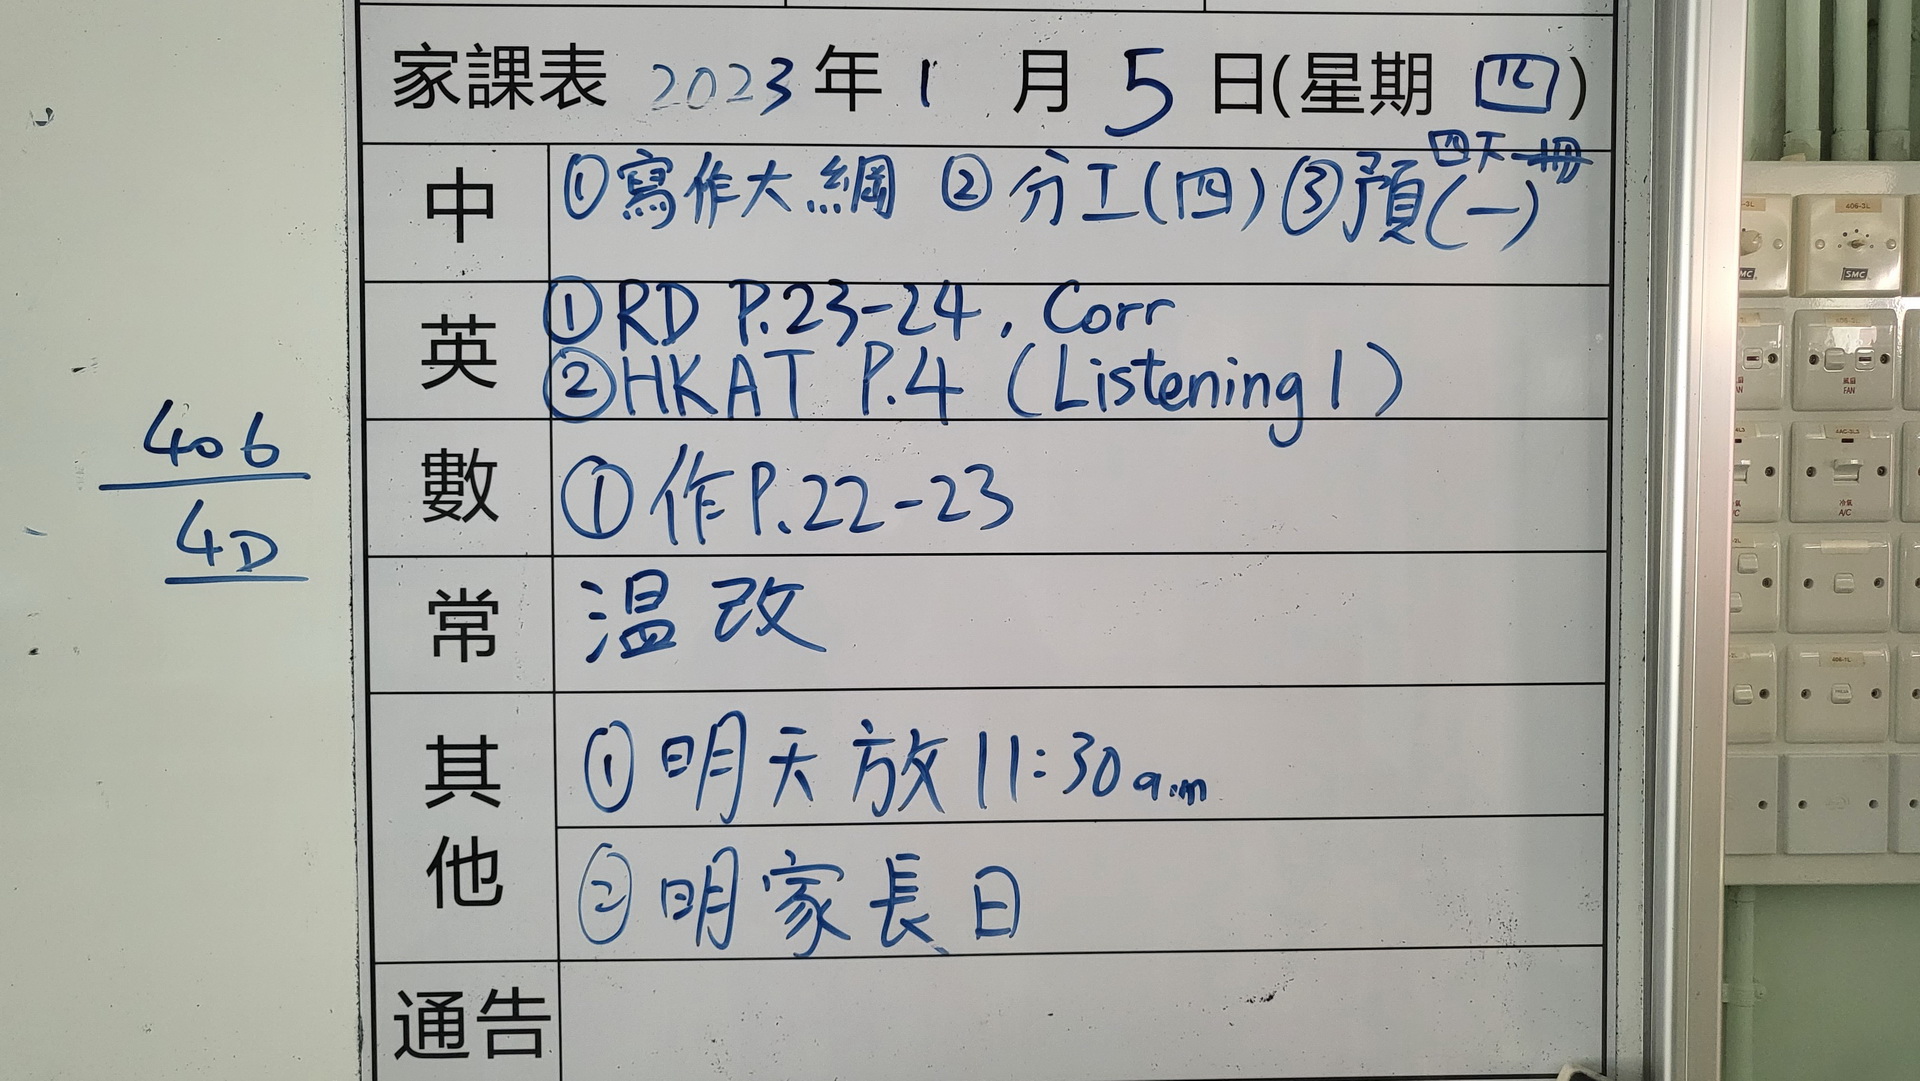 家課表 2023年1月5日(星期四)
四下一冊
中 ①寫作大綱 ②分工(四) ③預(一)
英 ①RD P.23-24, Corr
②HKAT P.4 (Listening 1)
數 ①作P.22-23
常 溫改
其他 ①明天放11:30a.m
②明家長日
通告
406
4D
406-3L
SMC
風扇
FAN
冷氣
A/C
406-1L